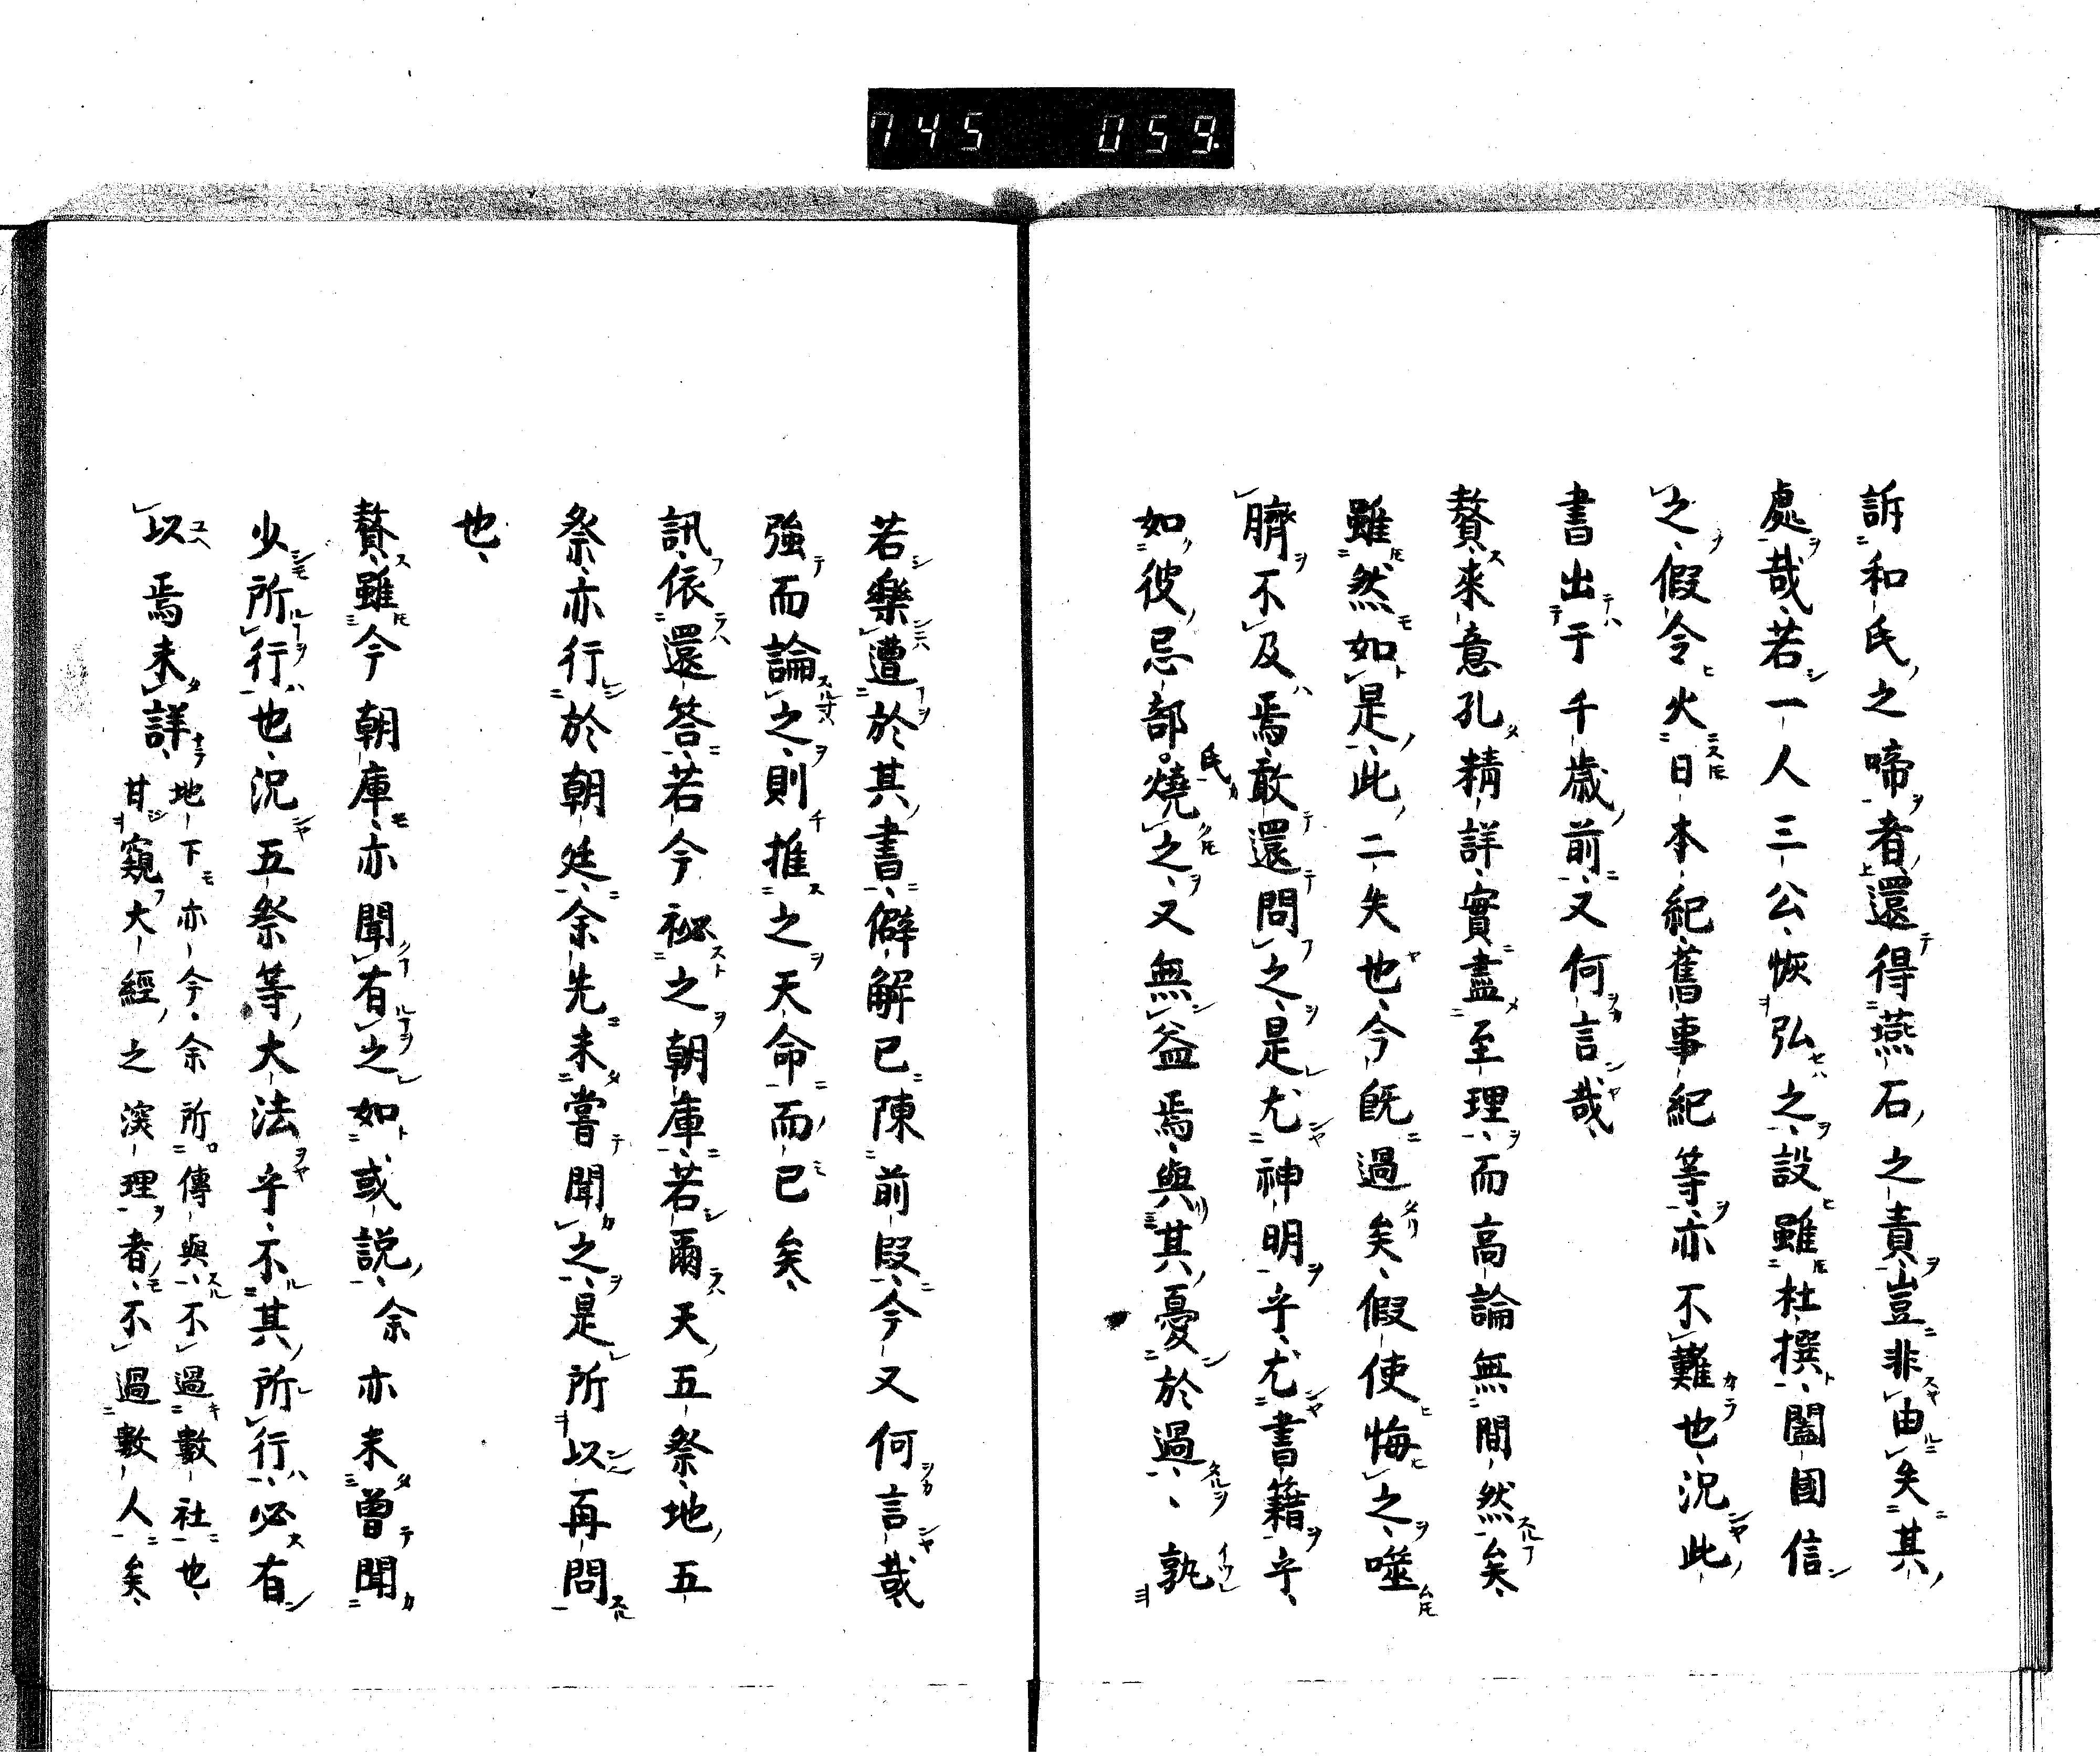 745 059.
訴和氏之啼者還得燕石之責豈非由失其
處哉若一人三公恢弘之設雖杜撰闔国信
之假令火日本紀舊事紀等亦不難也況此
書出于千歳前又何言哉
贅来意孔精詳實盡至理而高論無間然矣
雖然如是此二失也今既過矣假使悔之噬
臍不及焉敢還問之是尤神明乎尤書籍乎
如彼忌部氏燒之又無益焉與其憂於過、孰
若樂遭於其書僻解已陳前段今又何言哉
強而論之則推之天命而已矣
訊依還答若今祕之朝庫若爾天五祭地五
祭亦行於朝廷余先未嘗聞之是所以再問
也
贅雖今朝庫亦聞有之如或説余亦未曽聞
少所行也況五祭等大法乎不其所行必有
以焉未詳
地下亦今余所傳與不過數社也
甘窺大經之深理者不過數人矣